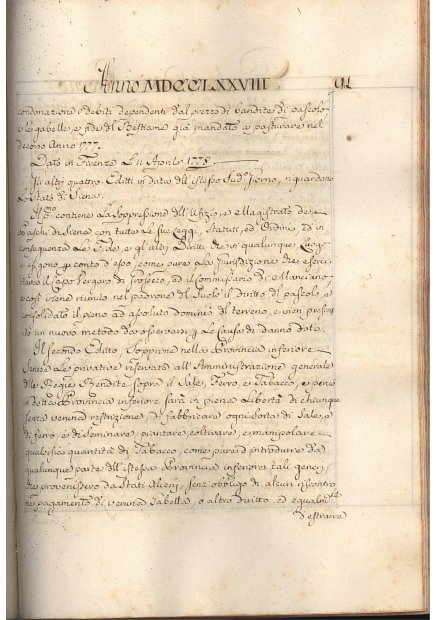 Anno MDCCLXXVIII 91
condonazione i debiti dependenti dal prezzo di bandite di pascolo
e le gabelle, e fide di Bestiame già mandato a pasturare nel
decorso Anno 1777.
Dato in Firenze Li 11 Aprile 1778.
Gli altri quattro Editti in data dell istesso Sud.º Giorno, riguardano
Lo Stato di Siena.
Il P.º contiene La Soppressione dell'Ufizio, e Magistrato de
Paschi di Siena con tutte Le sue Leggi, Statuti, ed Ordini, ed in
conseguenza Le Fide, e gli altri Diritti che in qualunque Luogo
si esigono p conto d'esso, come pure La Jurisdizione che eserci
tava il Capo Vergaro di Grosseto, ed il Commissario di Manciano,
e così viene riunito nel padrone del Suolo il diritto del pascolo, e
consolidato il pieno, ed assoluto dominio del terreno, e vien prescrit
to un nuovo metodo da osservarsi p Le Cause di danno dato.
Il secondo Editto, Sopprime nella Provincia inferiore
Senese Le privative riservate all'Amministrazione generale
delle Regie Rendite sopra il Sale, Ferro, e Tabacco, e perciò
in detta Provincia inferiore sarà in piena Libertà di chiunque
senza veruna restrizione, di fabbricare ogni sorta di Sale, e
di ferro, e di seminare, piantare, coltivare, e manipolare
qualsisia quantità di Tabacco, come pure d'introdurre da
qualunque parte dell'istessa Provincia inferiore tali generi,
che provenissero da Stati Alieni, senz'obbligo di alcun riscontro
ne pagamento di veruna Gabella, o altro diritto, ed egualm.te
d'estrarre